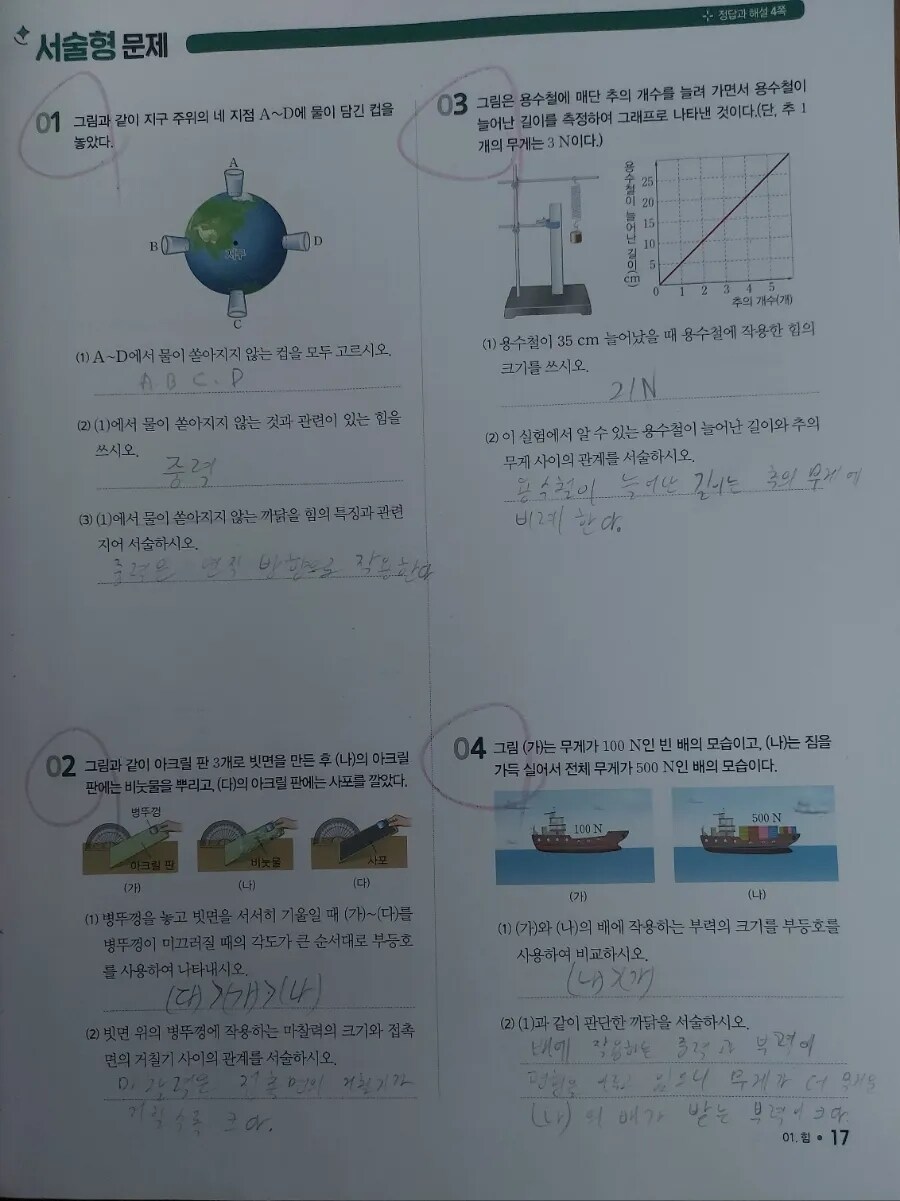 정답과 해설 4쪽
서술형 문제
01 그림과 같이 지구 주위의 네 지점 A~D에 물이 담긴 컵을
놓았다.
A
B
D
지구
C
(1) A~D에서 물이 쏟아지지 않는 컵을 모두 고르시오.
A B C. D
(2) (1)에서 물이 쏟아지지 않는 것과 관련이 있는 힘을
쓰시오.
중력
(3) (1)에서 물이 쏟아지지 않는 까닭을 힘의 특징과 관련
지어 서술하시오.
중력은 연직 방향으로 작용한다
02 그림과 같이 아크릴 판 3개로 빗면을 만든 후 (나)의 아크릴
판에는 비눗물을 뿌리고, (다)의 아크릴 판에는 사포를 깔았다.
병뚜껑
아크릴 판
비눗물
사포
(가)
(나)
(다)
(1) 병뚜껑을 놓고 빗면을 서서히 기울일 때 (가)~(다)를
병뚜껑이 미끄러질 때의 각도가 큰 순서대로 부등호
를 사용하여 나타내시오.
(다)>(가)>(나)
(2) 빗면 위의 병뚜껑에 작용하는 마찰력의 크기와 접촉
면의 거칠기 사이의 관계를 서술하시오.
마찰력은 접촉면의 거칠기가
거칠수록 크다.
03 그림은 용수철에 매단 추의 개수를 늘려 가면서 용수철이
늘어난 길이를 측정하여 그래프로 나타낸 것이다.(단, 추 1
개의 무게는 3 N이다.)
용수철이 늘어난 길이(cm)
25
20
15
10
5
0 1 2 3 4 5
추의 개수(개)
(1) 용수철이 35 cm 늘어났을 때 용수철에 작용한 힘의
크기를 쓰시오.
21N
(2) 이 실험에서 알 수 있는 용수철이 늘어난 길이와 추의
무게 사이의 관계를 서술하시오.
용수철이 늘어난 길이는 추의 무게에
비례 한다.
04 그림 (가)는 무게가 100 N인 빈 배의 모습이고, (나)는 짐을
가득 실어서 전체 무게가 500 N인 배의 모습이다.
100 N
500 N
(가)
(나)
(1) (가)와 (나)의 배에 작용하는 부력의 크기를 부등호를
사용하여 비교하시오.
(나)>(가)
(2) (1)과 같이 판단한 까닭을 서술하시오.
배에 작용하는 중력과 부력이
무게가 더
(나)의 배가 받는 부력이 크다
01. 힘 • 17